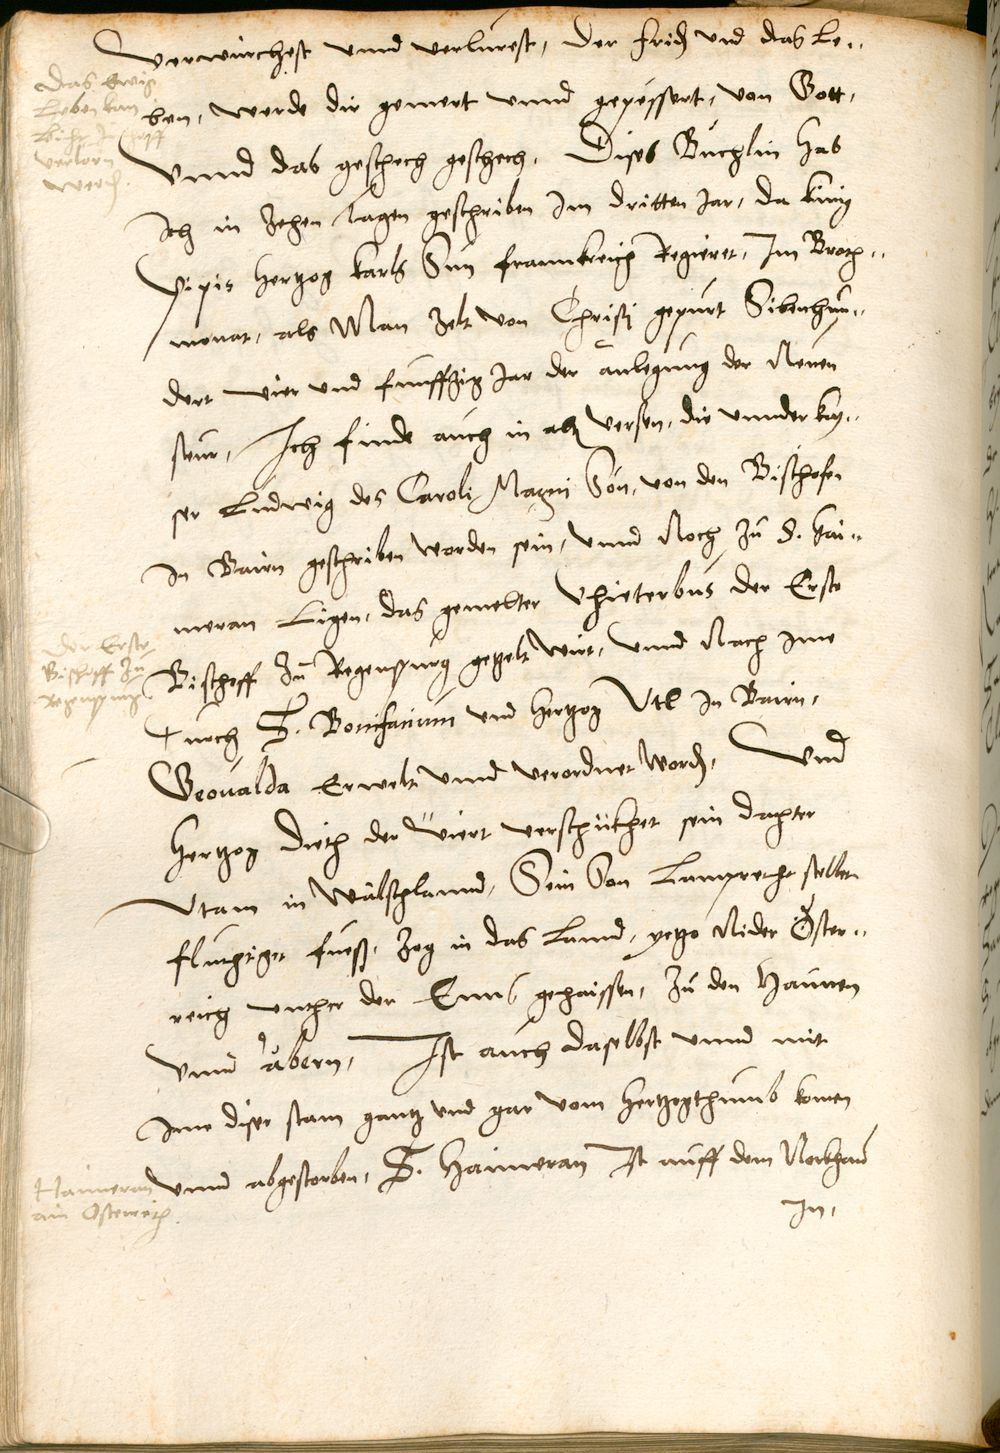 verwürchest unnd verlurest, der frid und das Le-
ben, werde dir gemert unnd gepessert, von Gott,
Unnd das geschech geschech. Dises Buchlin hab
Ich in zehen tagen geschriben Im dritten Jar, da kinig
Pipis hertzog karls Sun franckreich Regieret, Im Brach-
monat, als Man zelt von Christi gepurt Sibenhun-
dert vier und funffzig Jar der anlegung der Neuen
steur, Ich finde auch in altn versen, die unnder kay-
ser Ludwig des Caroli Magni Son, von den Bischofen
In Bairn geschriben worden sein, unnd Noch zu S. hai-
meran Ligen, das gemelter Vhicterbus der Erste
Bischoff zu Regenspurg gezelt wirt, unnd Nach Ime
durch S. Bonifacium und hertzog Utl In Bairn,
Geoualda Erwelt unnd verordnet word, Und
hertzog Dieth der Viert verschickhet sein dochter
Utam in Wälschlannd, Sein Son Lamprecht selber
fluchtiger fuess, zog in das Lannd, yetzo Nider Öster-
reich unther der Enns gehaissen, zu den Haunen
Unnd äbern, Ist auch daselbst unnd mit
Ime diser stam gantz und gar vom hertzogthumb komen
unnd abgestorben, S. Haimeran Ist auff dem Nockhaus
In,
Das Ewig
Leben kan
verlorn
werd.
Der Erste
Bischoff zu
Regenspurg.
Haimeran
ain Osterreich.